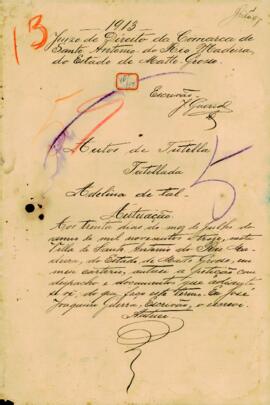 1913
Juizo de Direito da Comarca de
Santo Antonio do Rio Madeira,
do Estado de Matto Grosso.
Escrivão,
J. Guerra
Autos de Tutella
Tutellada
Adelina de tal -
Autuação
Aos trinta dias do mez de Julho do
anno de mil novecentos e treze, nesta
Villa de Santo Antonio do Rio Ma-
deira, do Estado de Matto Grosso, em
meu cartorio, autuei a petição com
despacho e documentos que
do que faço este termo. Eu José
Joaquim Guerra, Escrivão, o escrevi.
13
5